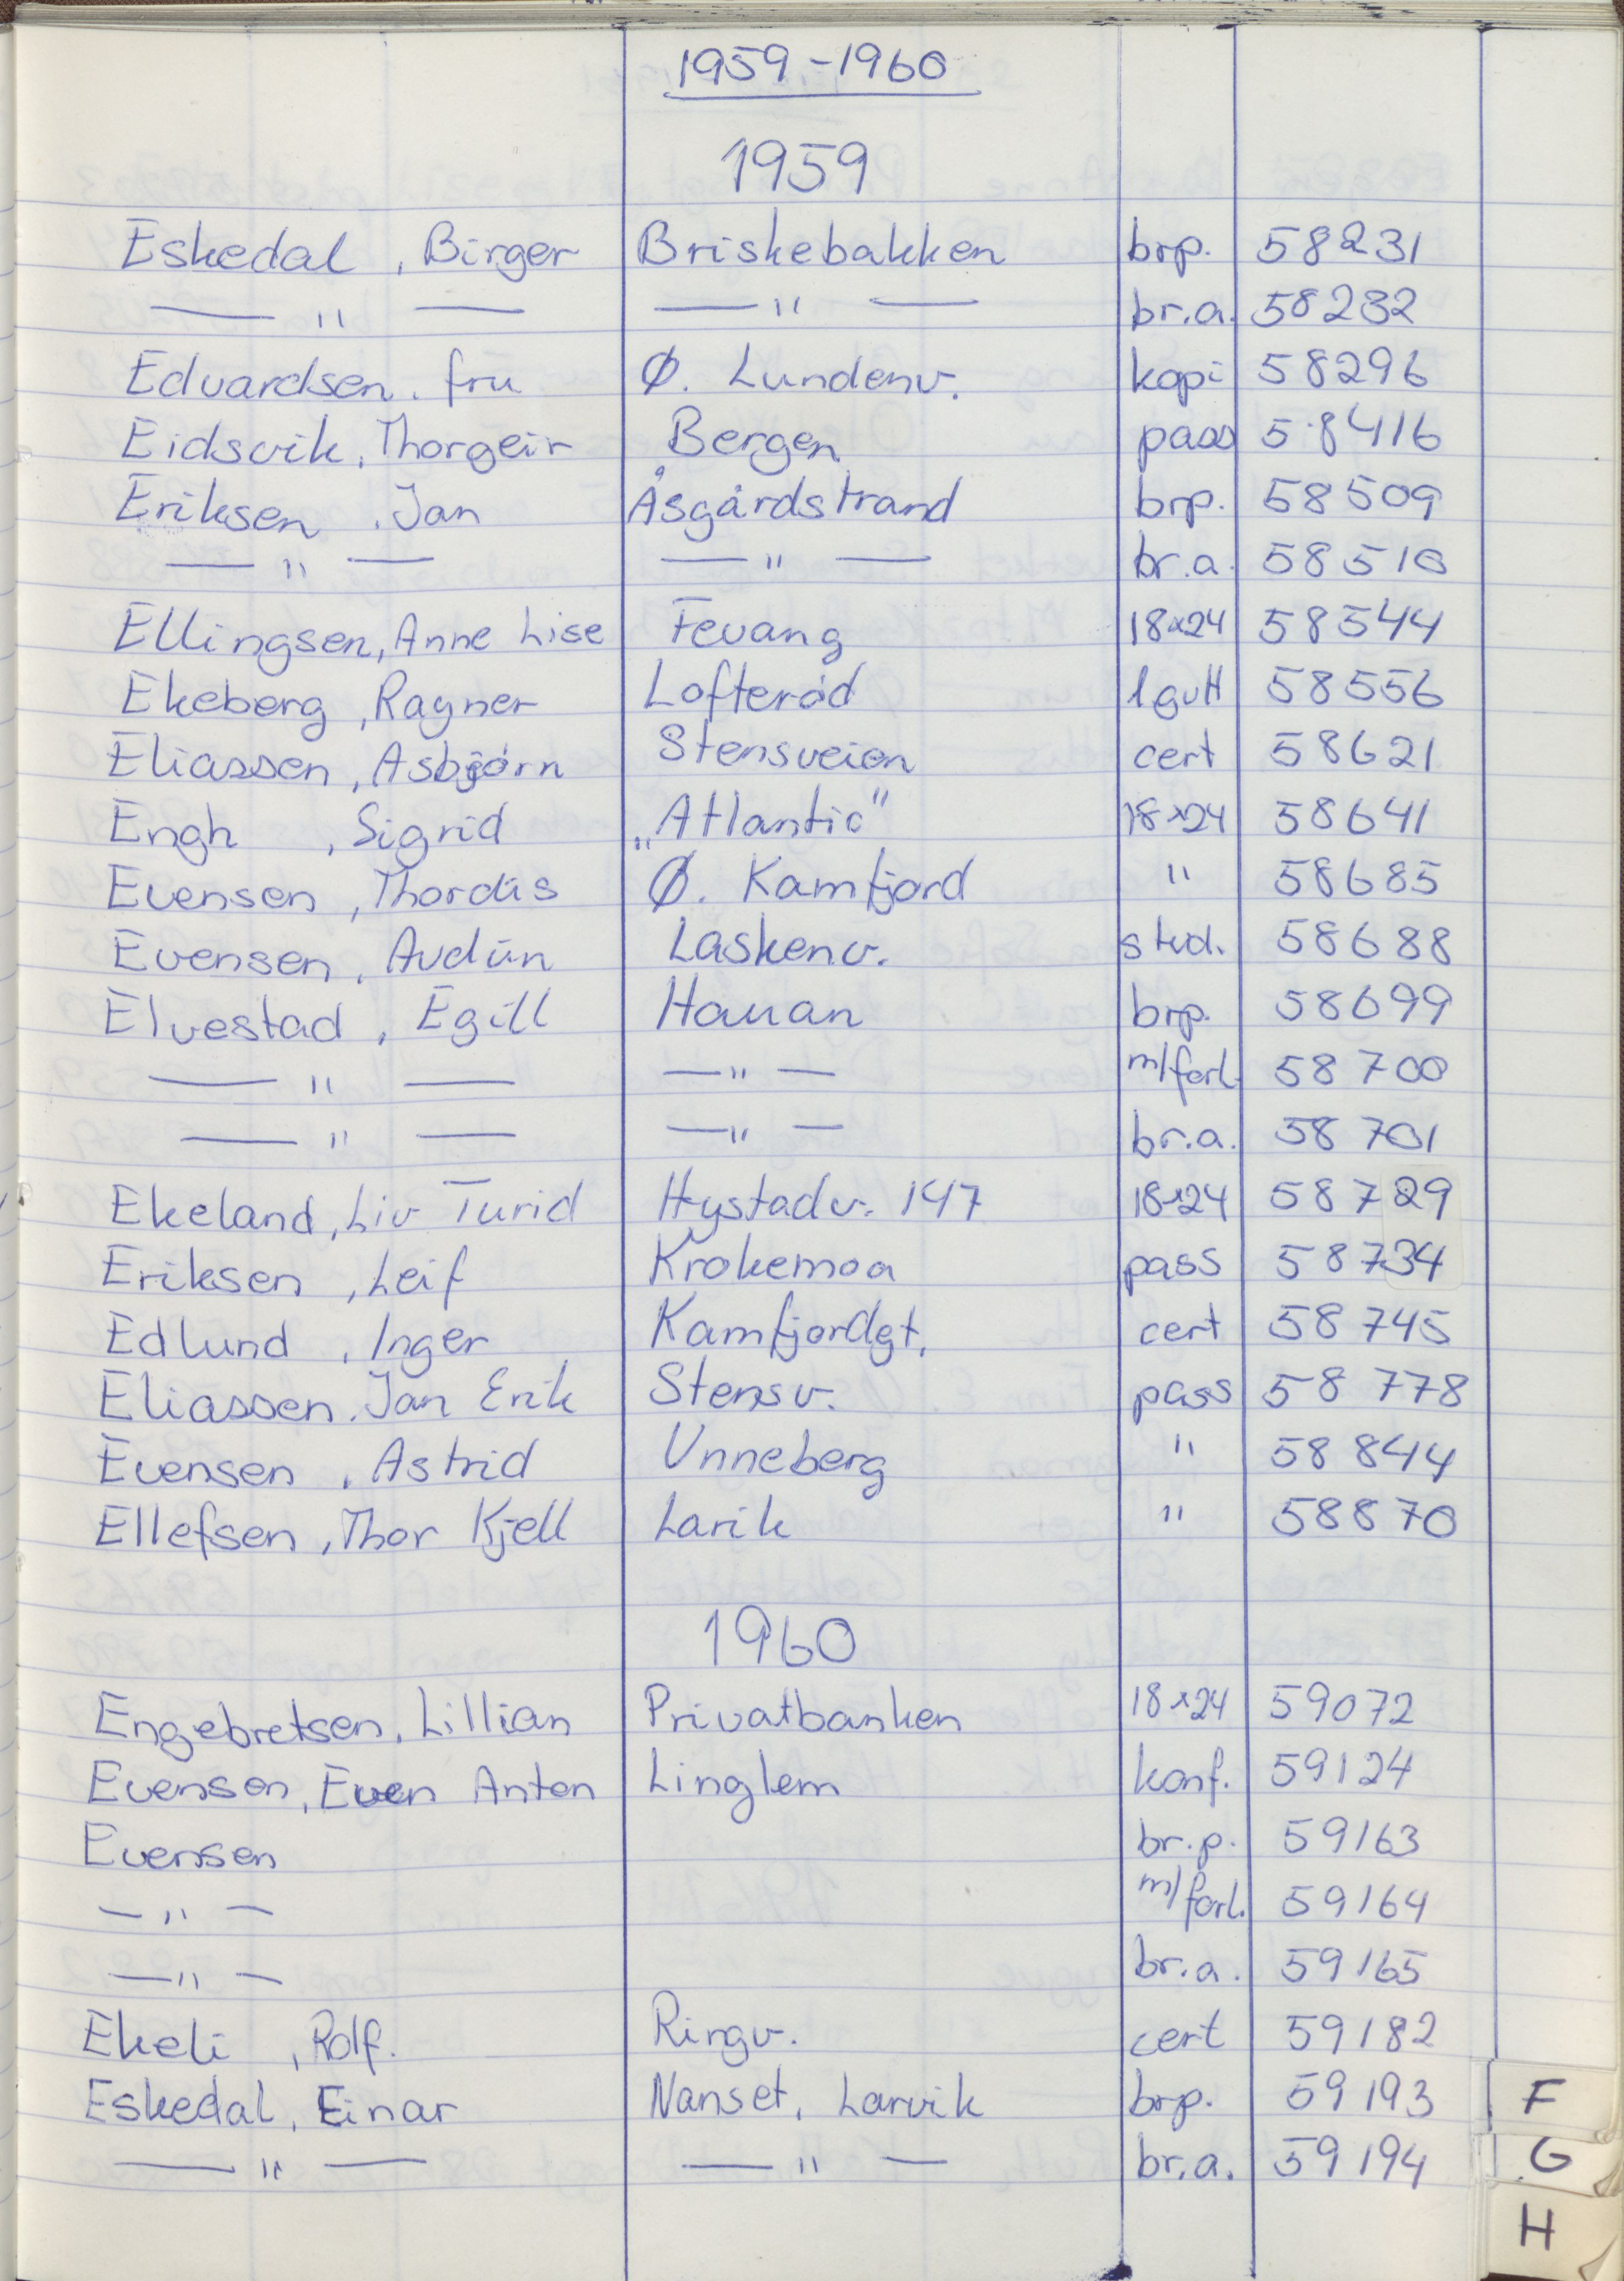 1959-1960
1959
Eskedal, Birger Briskebakken brp. 58231
— " — — " — br.a. 58232
Edvardsen. fru Ø. Lundenv. kopi 58296
Eidsvik, Thorgeir Bergen pass 58416
Eriksen, Jan Åsgårdstrand brp. 58509
— " — — " — br.a. 58510
Ellingsen, Anne Lise Fevang 18x24 58544
Ekeberg, Ragner Lofterød 1 gutt 58556
Eliassen, Asbjørn Stensveien cert 58621
Engh, Sigrid „Atlantic" 18x24 58641
Evensen, Thordis Ø. Kamfjord " 58685
Evensen, Audun Laskenv. stud. 58688
Elvestad, Egill Hauan brp. 58699
— " — — " — m/forl. 58700
— " — — " — br.a. 58701
Ekeland, Liv Turid Hystadv. 147 18x24 58729
Eriksen, Leif Krokemoa pass 58734
Edlund, Inger Kamfjordgt. cert 58745
Eliassen. Jan Erik Stensv. pass 58778
Evensen, Astrid Unneberg " 58844
Ellefsen, Thor Kjell Larik " 58870
1960
Engebretsen, Lillian Privatbanken 18x24 59072
Evensen, Even Anton Linglem konf. 59124
Evensen br.p. 59163
— " — m/forl. 59164
— " — br.a. 59165
Ekeli, Rolf. Ringv. cert 59182
Eskedal, Einar Nanset, Larvik brp. 59193
— " — — " — br.a. 59194
F
G
H